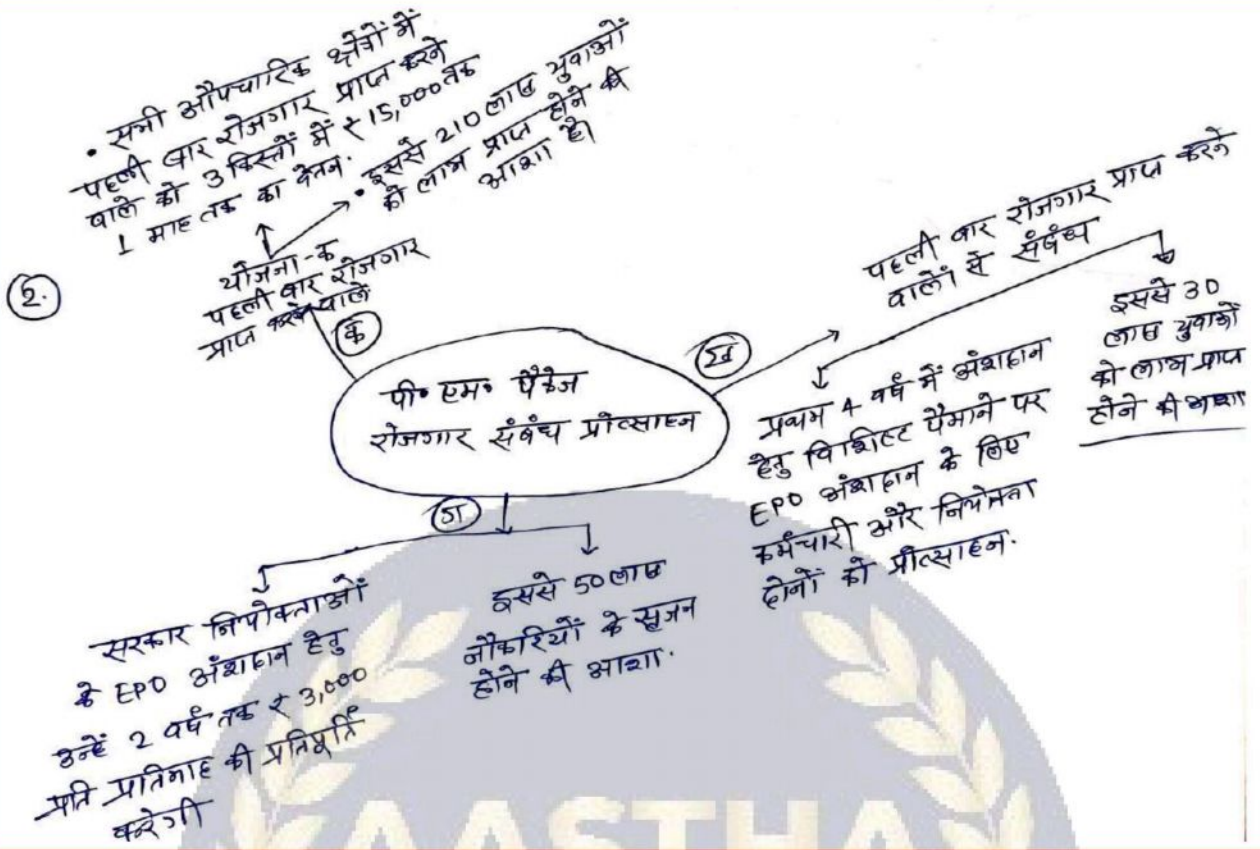 2.
• सभी औपचारिक क्षेत्रों में
पहली बार रोजगार प्राप्त करने
वाले को 3 किस्तों में ₹15,000 तक
1 माह तक का वेतन.
• इससे 210 लाख युवाओं
को लाभ प्राप्त होने की
आशा है।
योजना-क
पहली बार रोजगार
प्राप्त करने वाले
क
पी॰ एम॰ पैकेज
रोजगार संबंध प्रोत्साहन
ख
पहली बार रोजगार प्राप्त करने
वालों से संबंध
प्रथम 4 वर्ष में अंशदान
हेतु विशिष्ट पैमाने पर
EPO अंशदान के लिए
कर्मचारी और नियोक्ता
दोनों को प्रोत्साहन.
इससे 30
लाख युवाओं
को लाभ प्राप्त
होने की आशा
ग
सरकार नियोक्ताओं
के EPO अंशदान हेतु
उन्हें 2 वर्ष तक ₹3,000
प्रति प्रतिमाह की प्रतिपूर्ति
करेगी
इससे 50 लाख
नौकरियों के सृजन
होने की आशा.
AASTHA